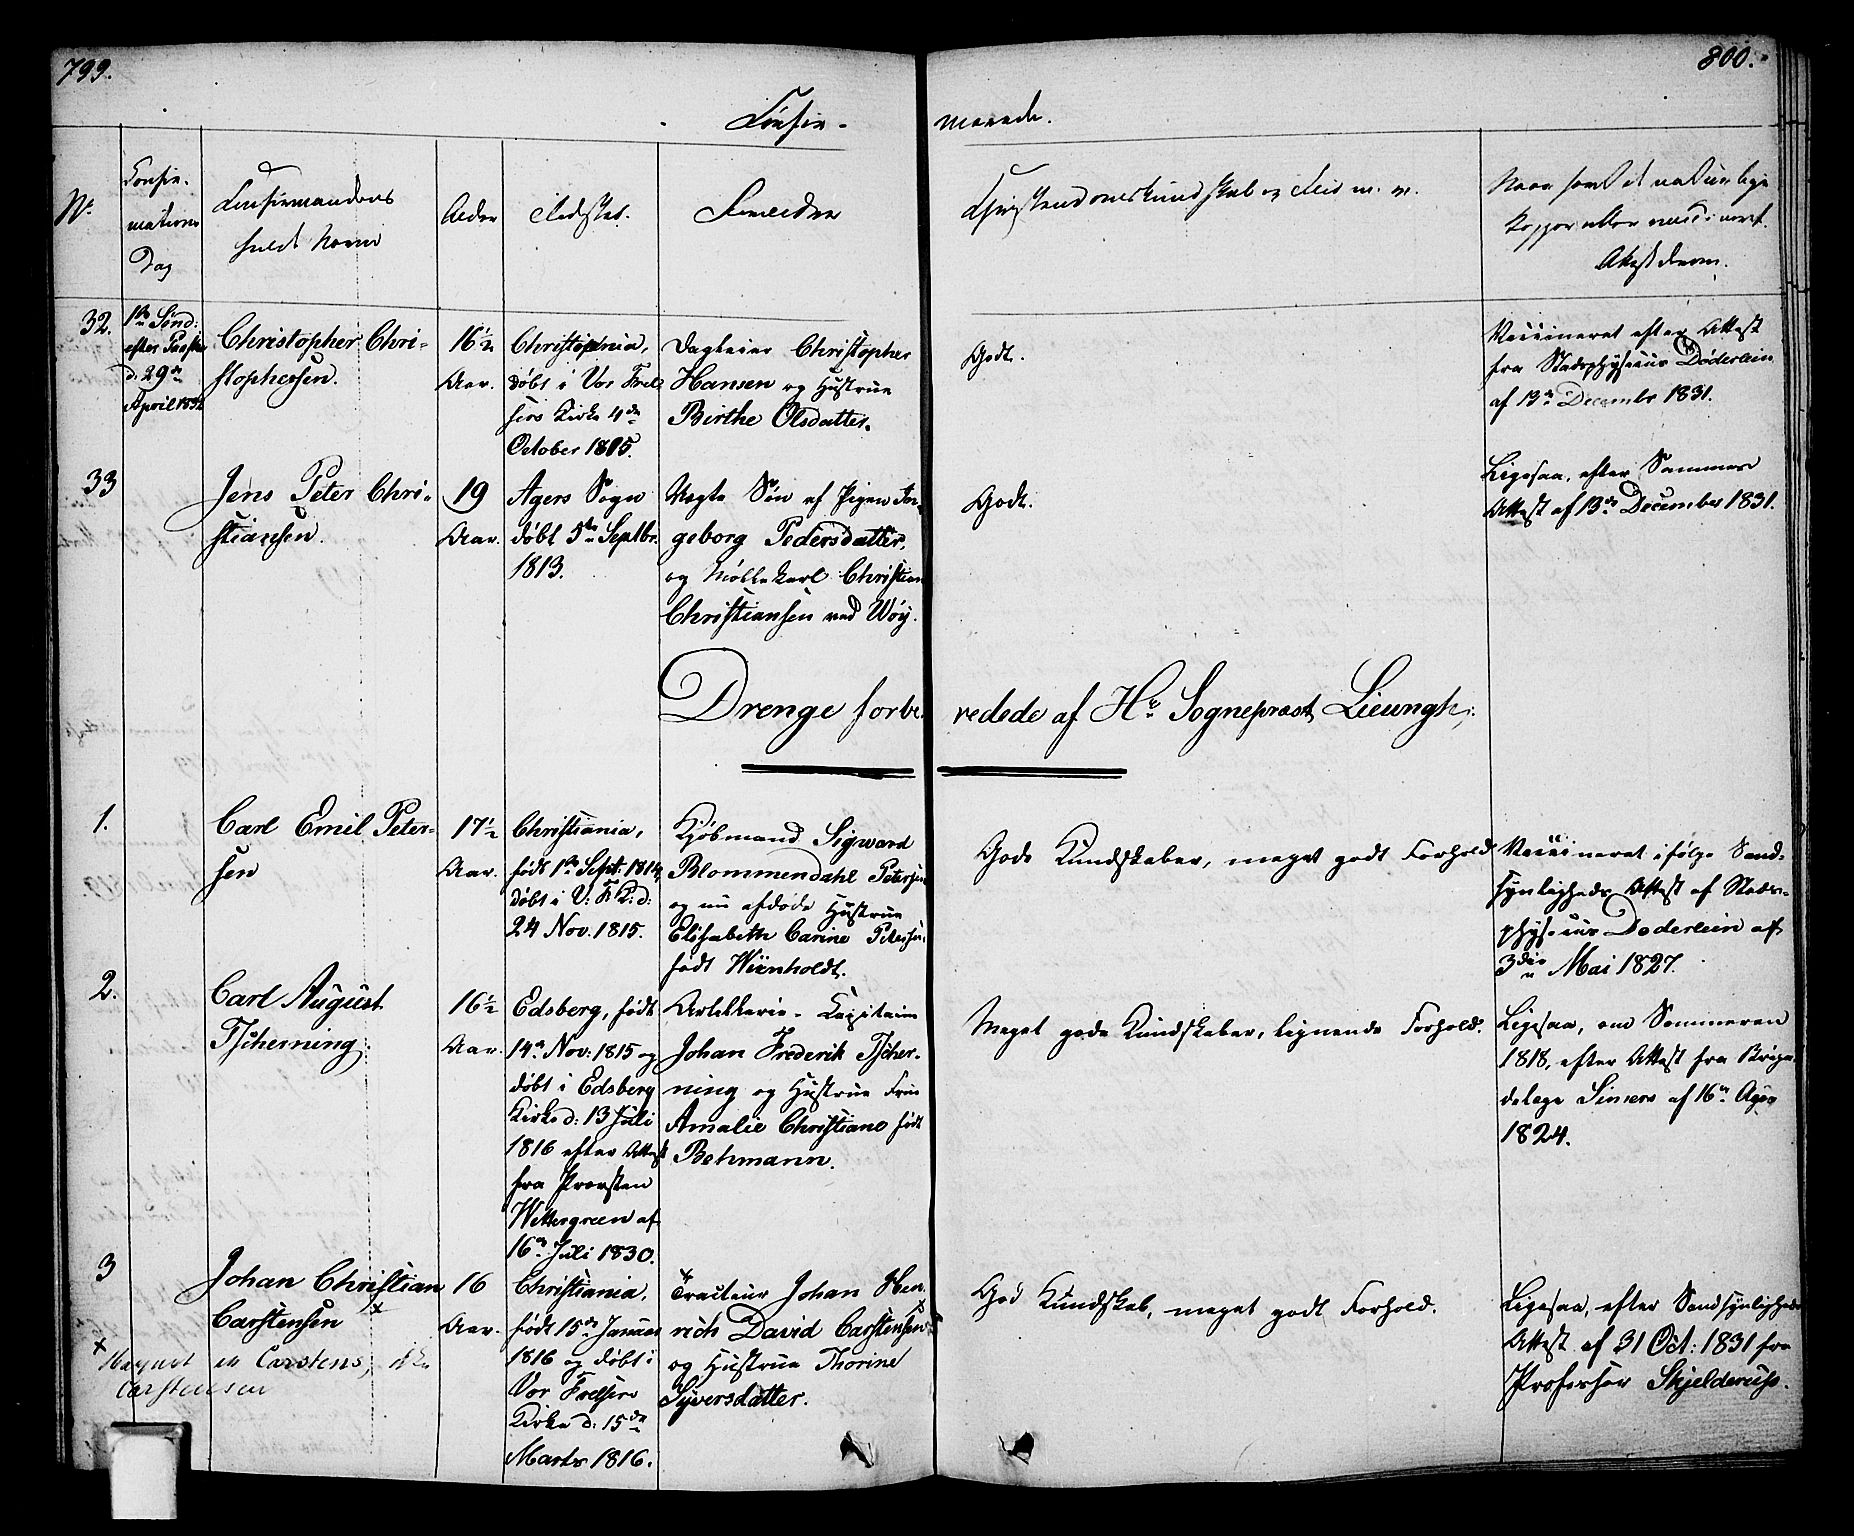 799.
800.
Confir-
merede.
No.
Confir-
mations
Dag
Confirmandens
fulde Navn
Alder
Fødested.
Forældre
Christendomskundskab og Flid m. v.
Naar havt de naturlige
Kopper eller vaccineret.
Attest derom.
32.
1ste Sønd:
efter Paaske
d. 29de
April 1832
Christopher Chri-
stophersen.
16½
Aar.
Christiania,
døbt i Vor Frel-
sers Kirke 4de
October 1815.
Dagleier Christopher
Hansen og Hustrue
Birthe Olsdatter.
Godt.
Vaccineret efter Attest
fra Stadsphysicus Døderlein
af 13de December 1831.
33
Jens Peter Chri-
stiansen.
19
Aar.
Agers Sogn
døbt 5te Septbr.
1813.
Uægte Søn af Pigen In-
geborg Pedersdatter,
og Møllekarl Christian
Christiansen ved Wøy.
Godt.
Ligesaa, efter Sammes
Attest af 13de December 1831.
Drenge forbe- redede af Hr. Sognepræst Lieungh:
1.
Carl Emil Peter-
sen
17½
Aar.
Christiania,
født 1ste Sept: 1814,
døbt i V: F: K: d:
24 Nov. 1815.
Kjøbmand Sigward
Blommendahl Petersen
og nu afdøde Hustrue
Elisabeth Carine Petersen
født Wienholdt.
Gode Kundskaber, meget godt Forhold
Vaccineret ifølge Sand-
synligheds Attest af Stads-
physicus Døderlein af
3die Mai 1827.
2.
Carl August
Tscherning
16½
Aar.
Edsberg, født
14de Nov: 1815 og
døbt i Edsberg
Kirke d: 13 Juli
1816 efter Attest
fra Provsten
Wettergreen af
16de Juli 1830.
Artillerie-Capitain
Johan Frederik Tscher-
ning og Hustrue Frue
Amalie Christiane født
Behmann.
Meget gode Kundskaber, lignende Forhold.
Ligesaa, om Sommeren
1818, efter Attest fra Briga-
delæge Simers af 16de
1824.
3
Johan Christian
Carstensen
×
16
Aar.
Christiania,
født 15de Januar
1816 og døbt i
Vor Frelsers
Kirke d: 15de
Marts 1816.
× Tracteur Johan Hen-
rich David Carstensen
og Hustrue Thorine
Syversdatter.
God Kundskab, meget godt Forhold.
Ligesaa, efter Sandsynligheds
Attest af 31 Oct: 1831 fra
Professor Skjelderup.
×
Navnet er Carstens, ikke
Carstensen